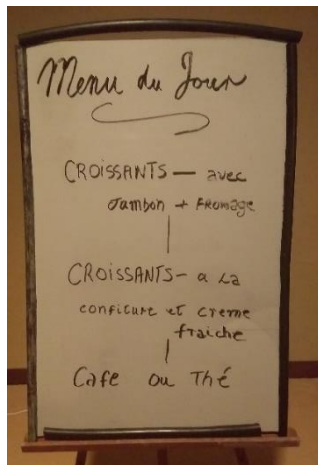 Menu du Jour
CROISSANTS — avec
Jambon + FROMAGE
CROISSANTS - a La
confiture et creme
fraiche
Cafe ou Thé